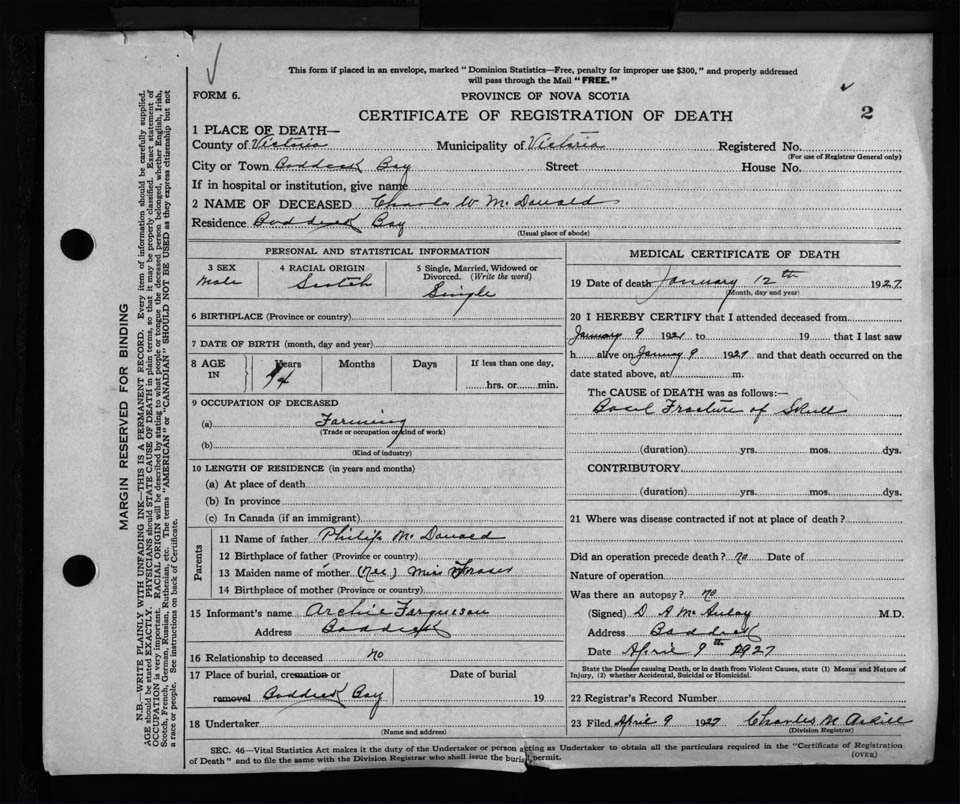 This form if placed in an envelope, marked "Dominion Statistics—Free, penalty for improper use $300," and properly addressed
will pass through the Mail "FREE."
FORM 6.
PROVINCE OF NOVA SCOTIA
CERTIFICATE OF REGISTRATION OF DEATH
2
1 PLACE OF DEATH—
County of Victoria Municipality of Victoria Registered No.
(For use of Registrar General only)
City or Town Baddeck Bay Street House No.
If in hospital or institution, give name
2 NAME OF DECEASED Charles W McDonald
Residence Baddeck Bay
(Usual place of abode)
PERSONAL AND STATISTICAL INFORMATION
3 SEX
Male
4 RACIAL ORIGIN
Scotch
5 Single, Married, Widowed or
Divorced. (Write the word)
Single
6 BIRTHPLACE (Province or country)
7 DATE OF BIRTH (month, day and year)
8 AGE
IN
Years
Months
Days
If less than one day,
hrs. or min.
9 OCCUPATION OF DECEASED
(a) Farming
(Trade or occupation or kind of work)
(b)
(Kind of industry)
10 LENGTH OF RESIDENCE (in years and months)
(a) At place of death
(b) In province
(c) In Canada (if an immigrant)
Parents
11 Name of father Philip McDonald
12 Birthplace of father (Province or country)
13 Maiden name of mother (Nee) Miss Fraser
14 Birthplace of mother (Province or country)
15 Informant's name Archie Farqueson
Address Baddeck
16 Relationship to deceased no
17 Place of burial, cremation or Date of burial
removal Baddeck Bay 19
18 Undertaker
(Name and address)
MEDICAL CERTIFICATE OF DEATH
19 Date of death January 12th 1927
(Month, day and year)
20 I HEREBY CERTIFY that I attended deceased from
January 9 1927 to 19 that I last saw
h alive on January 9 1927 and that death occurred on the
date stated above, at m.
The CAUSE of DEATH was as follows:—
Basal Fracture of Skull
(duration) yrs. mos. dys.
CONTRIBUTORY
(duration) yrs. mos. dys.
21 Where was disease contracted if not at place of death?
Did an operation precede death? no Date of
Nature of operation
Was there an autopsy? no
(Signed) D A McAulay M.D.
Address Baddeck
Date April 9th 1927
State the Disease causing Death, or in death from Violent Causes, state (1) Means and Nature of
Injury, (2) whether Accidental, Suicidal or Homicidal.
22 Registrar's Record Number
23 Filed April 9 1927 Charles McAskill
(Division Registrar)
SEC. 46—Vital Statistics Act makes it the duty of the Undertaker or person acting as Undertaker to obtain all the particulars required in the "Certificate of Registration
of Death" and to file the same with the Division Registrar who shall issue the burial permit.
(OVER)
MARGIN RESERVED FOR BINDING
N.B.—WRITE PLAINLY WITH UNFADING INK—THIS IS A PERMANENT RECORD. Every item of information should be carefully supplied.
AGE should be stated EXACTLY. PHYSICIANS should STATE CAUSE OF DEATH in plain terms, so that it may be properly classified. Exact statement of
OCCUPATION is very important. RACIAL ORIGIN will be described by stating to what people or tongue the deceased person belonged, whether English, Irish,
Scotch, French, German, Russian, Ruthenian, etc. The terms "AMERICAN" or "CANADIAN" SHOULD NOT BE USED as they express citizenship but not
a race or people. See instructions on back of Certificate.